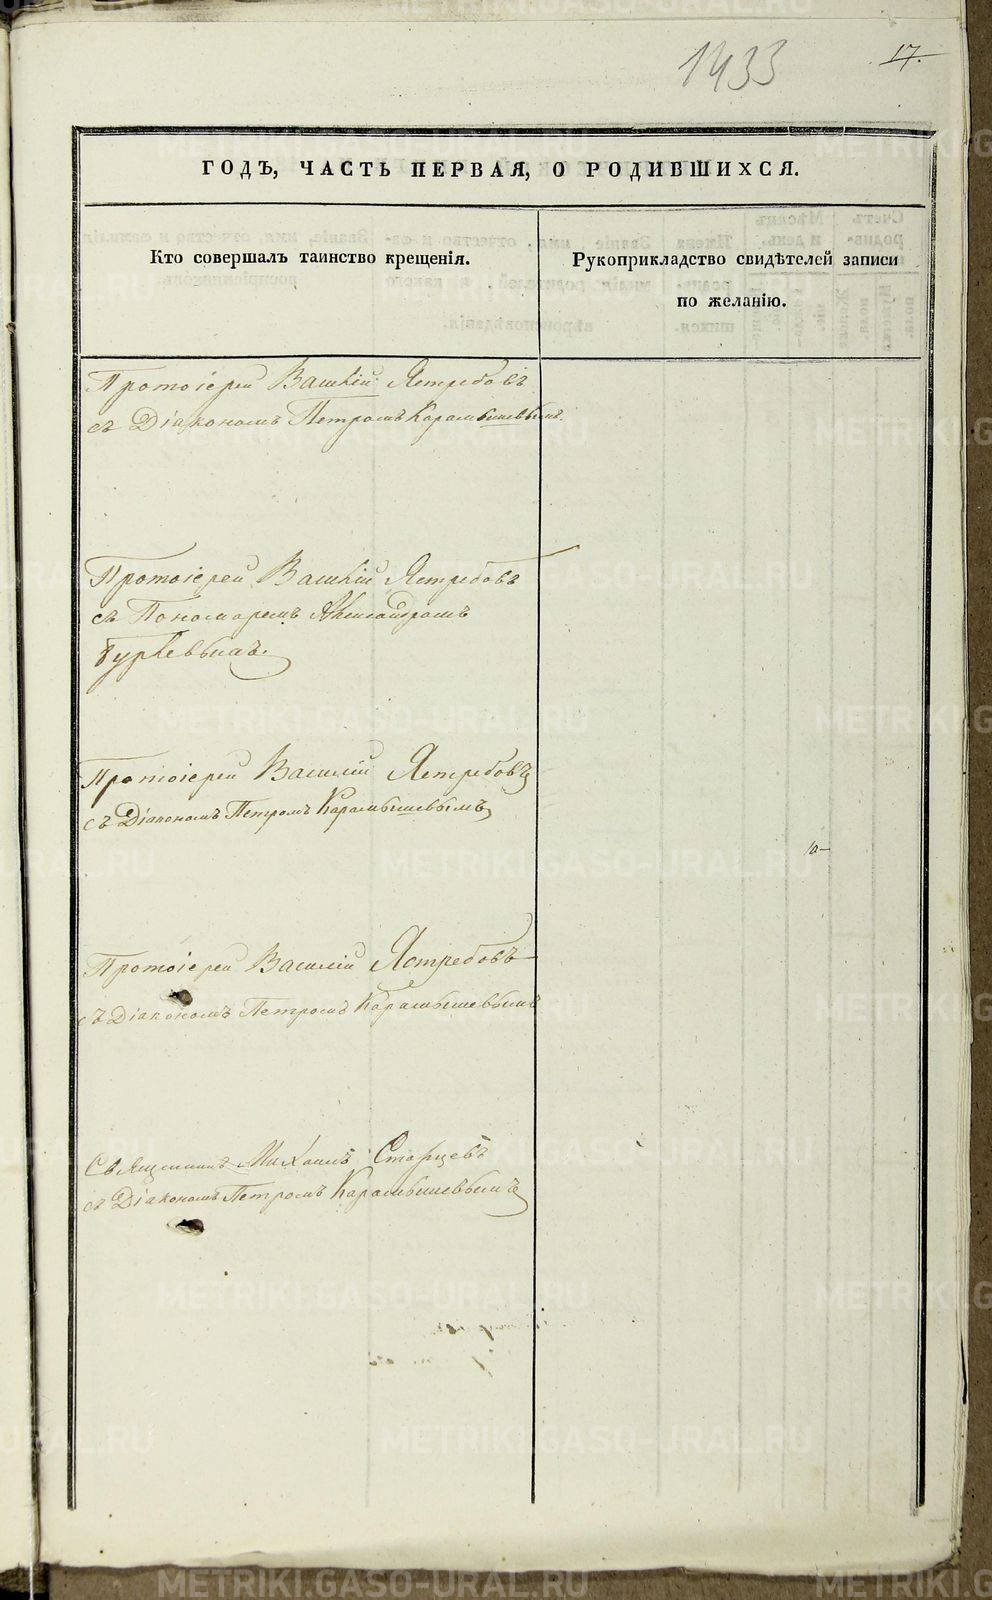 1433
17.
ГОДЪ, ЧАСТЬ ПЕРВАЯ, О РОДИВШИХСЯ.
Кто совершалъ таинство крещенія.
Рукоприкладство свидѣтелей записи
по желанію.
Протоіерей Василій Ястребовъ
съ Діакономъ Петромъ Карамышевымъ.
Протоіерей Василій Ястребовъ
съ Пономаремъ Александромъ
Протоіерей Василій Ястребовъ
съ Діакономъ Петромъ Карамышевымъ
Протоіерей Василій Ястребовъ
съ Діакономъ Петромъ Карамышевымъ
Священникъ Михаилъ Старцевъ
съ Діакономъ Петромъ Карамышевымъ
METRIKI.GASO-URAL.RU